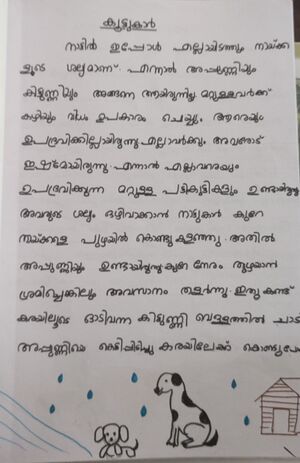 കൂട്ടുകാർ
നാട്ടിൽ ഇപ്പോൾ എല്ലായിടത്തും നായ്ക്ക
ളുടെ ശല്യമാണ്. എന്നാൽ അപ്പുണ്ണിയും
കിട്ടുണ്ണിയും അങ്ങനെ ആയിരുന്നില്ല. മറ്റുള്ളവർക്ക്
കഴിയും വിധം ഉപകാരം ചെയ്യും. ആരെയും
ഉപദ്രവിക്കില്ലായിരുന്നു എല്ലാവർക്കും അവരോട്
ഇഷ്ടമായിരുന്നു. എന്നാൽ എല്ലാവരെയും
ഉപദ്രവിക്കുന്ന മറ്റുള്ള പട്ടികുട്ടികളും ഉണ്ടായിരുന്നു
അവരുടെ ശല്യം ഒഴിവാക്കാൻ നാട്ടുകാർ കുറെ
നായ്ക്കളെ പുഴയിൽ കൊണ്ടു കളഞ്ഞു. അതിൽ
അപ്പുണ്ണിയും ഉണ്ടായിരുന്നു കുറേ നേരം തുഴയാൻ
ശ്രമിച്ചെങ്കിലും അവസാനം തളർന്നു. ഇതു കണ്ട്
കരയിലൂടെ ഓടിവന്ന കിട്ടുണ്ണി വെള്ളത്തിൽ ചാടി
അപ്പുണ്ണിയെ കടിച്ചുപിടിച്ചു കരയിലേക്ക് കൊണ്ടുപോ